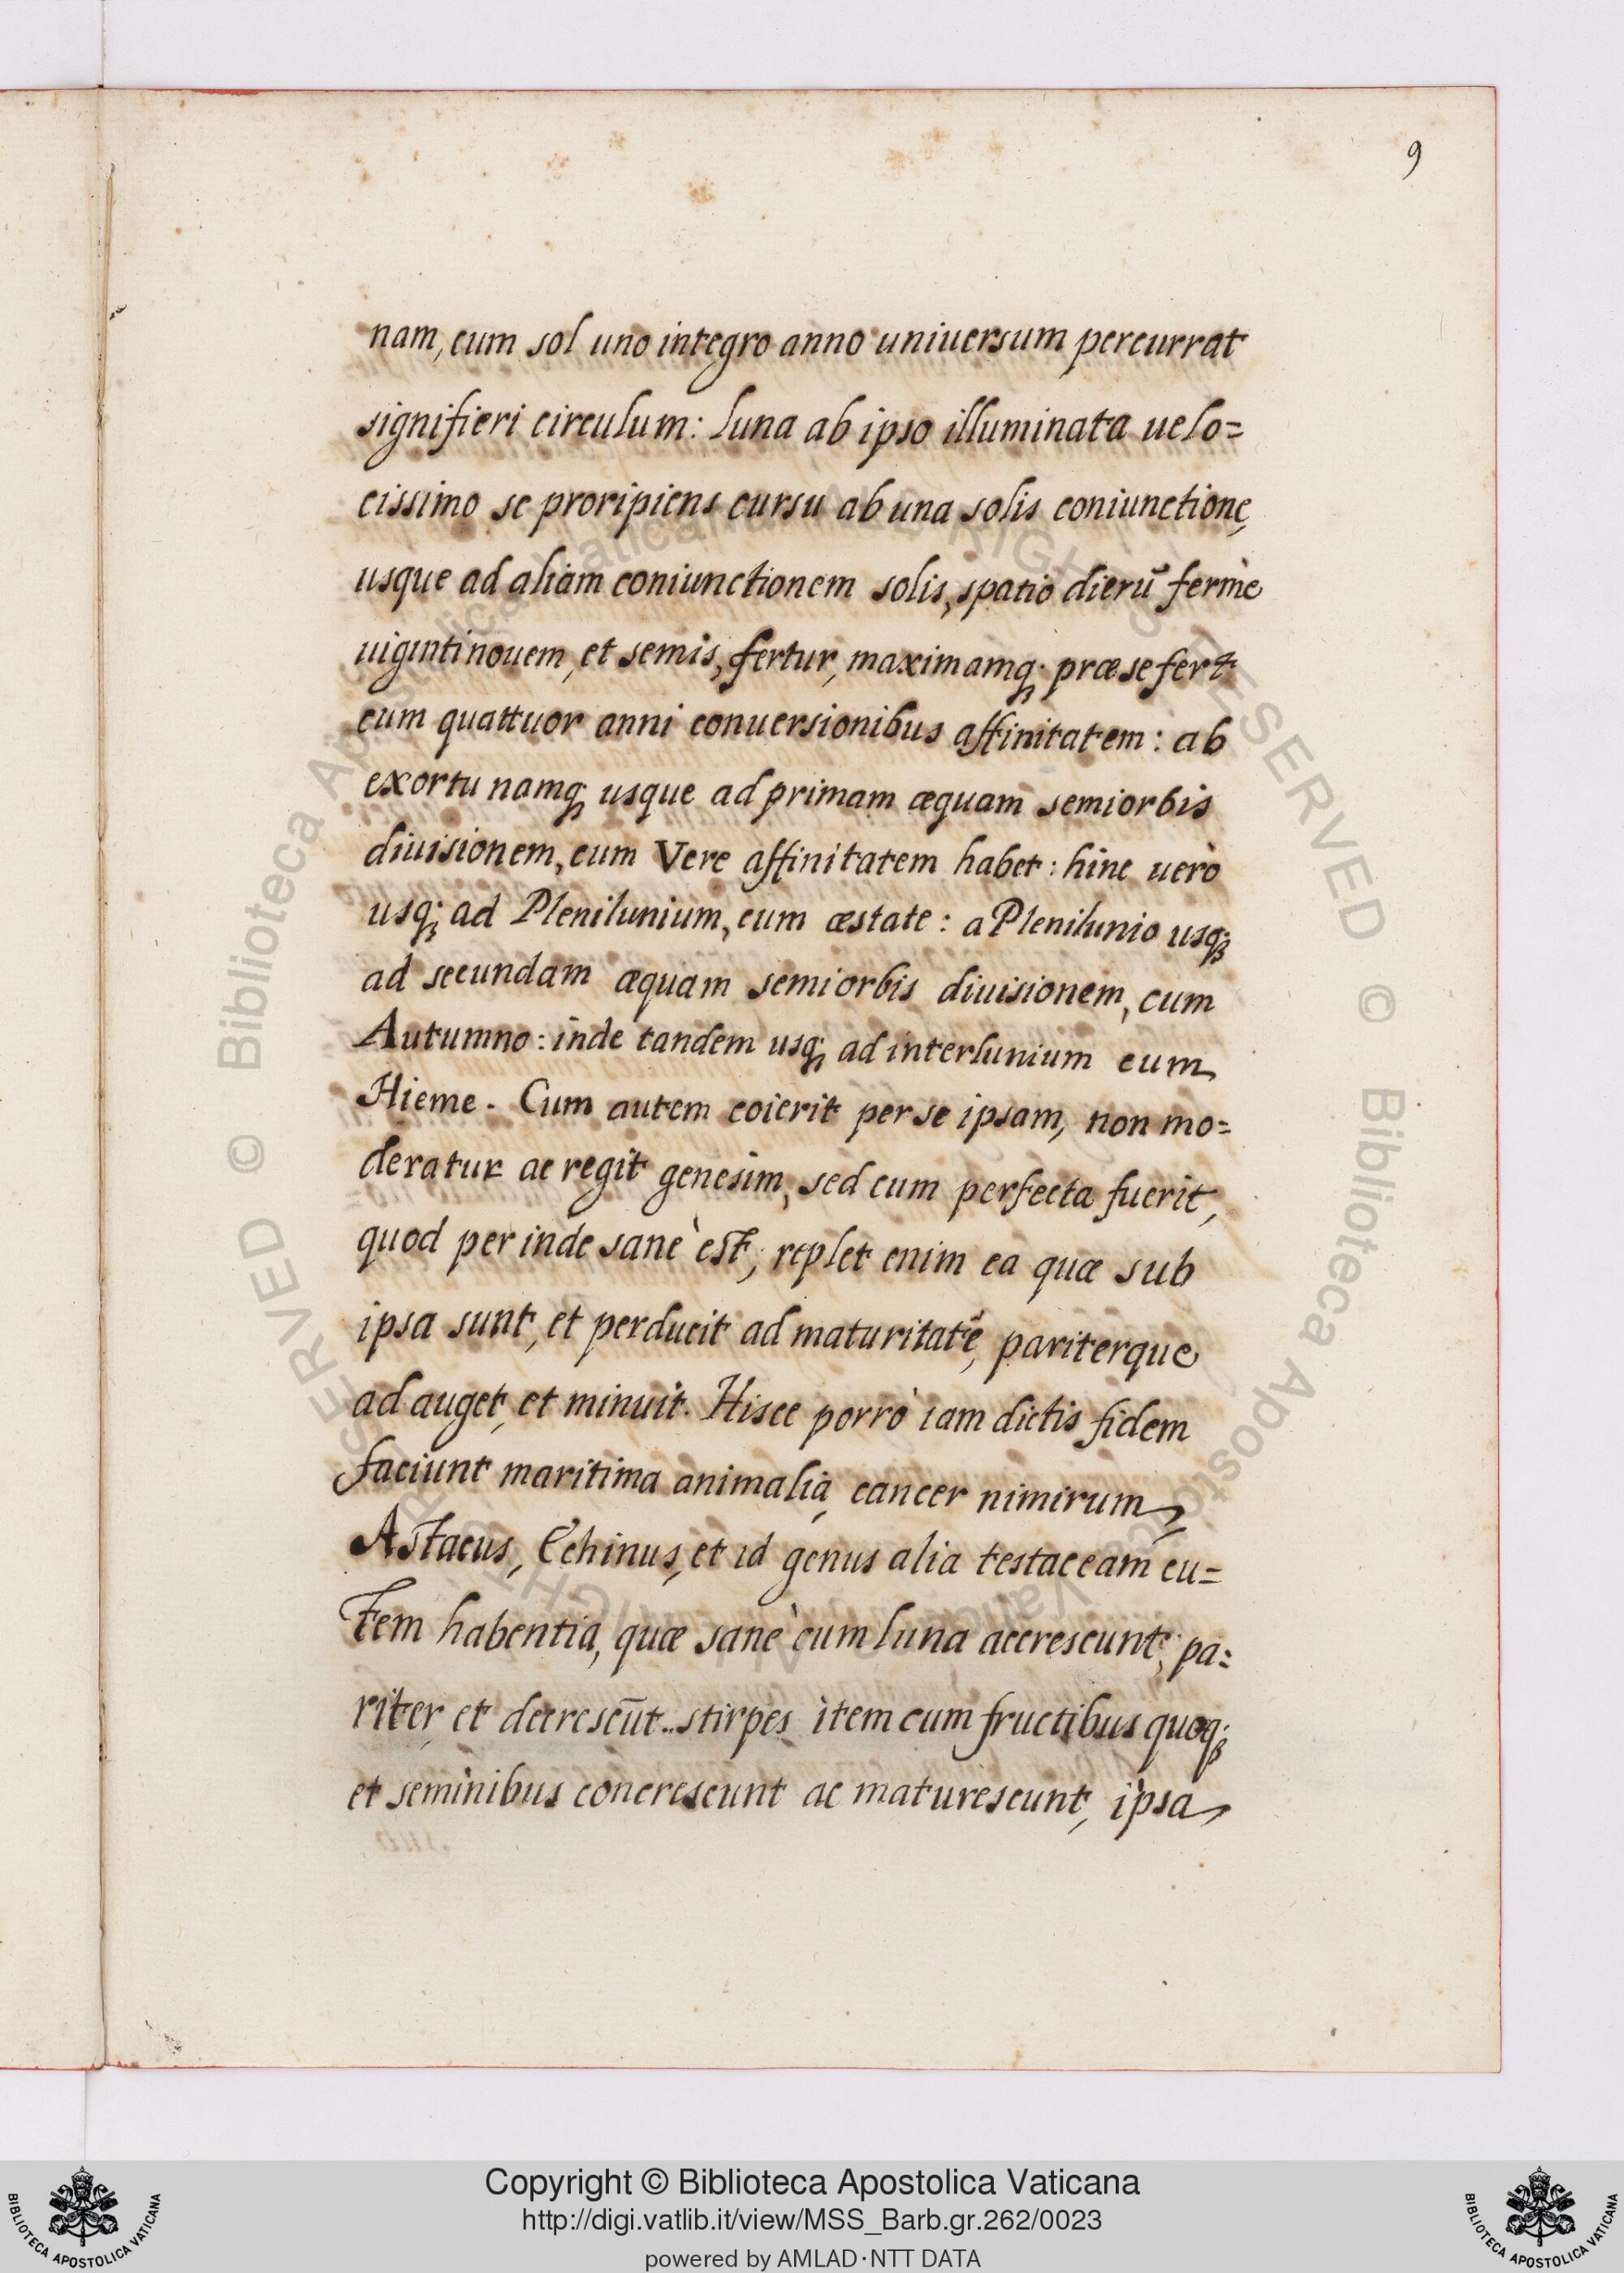 9
nam, cum sol uno integro anno uniuersum percurrat
signiferi circulum: luna ab ipso illuminata uelo=
cissimo se proripiens cursu ab una solis coniunctione,
usque ad aliam coniunctionem solis, spatio dierũ fermè
uigintinouem, et semis, fertur, maximamq; præ se fert
cum quattuor anni conuersionibus affinitatem: ab
exortu namq; usque ad primam æquam semiorbis
diuisionem, cum Vere affinitatem habet: hinc uerò
usq; ad Plenilunium, cum æstate: a Plenilunio usq;
ad secundam æquam semiorbis diuisionem, cum
Autumno: inde tandem usq; ad interlunium cum
Hieme. Cum autem coierit per se ipsam, non mo=
deratur ac regit genesim, sed cum perfecta fuerit,
quod perinde sanè est; replet enim ea quæ sub
ipsa sunt, et perducit ad maturitatẽ, pariterque
adauget, et minuit. Hisce porrò iam dictis fidem
faciunt maritima animalia, cancer nimirum,
Astacus, Echinus, et id genus alia testaceam cu=
tem habentia, quæ sanè cum luna accrescunt, pa=
riter, et decrescũt.. stirpes item cum fructibus quoq;
et seminibus concrescunt ac maturescunt, ipsa
Copyright © Biblioteca Apostolica Vaticana
http://digi.vatlib.it/view/MSS_Barb.gr.262/0023
powered by AMLAD·NTT DATA